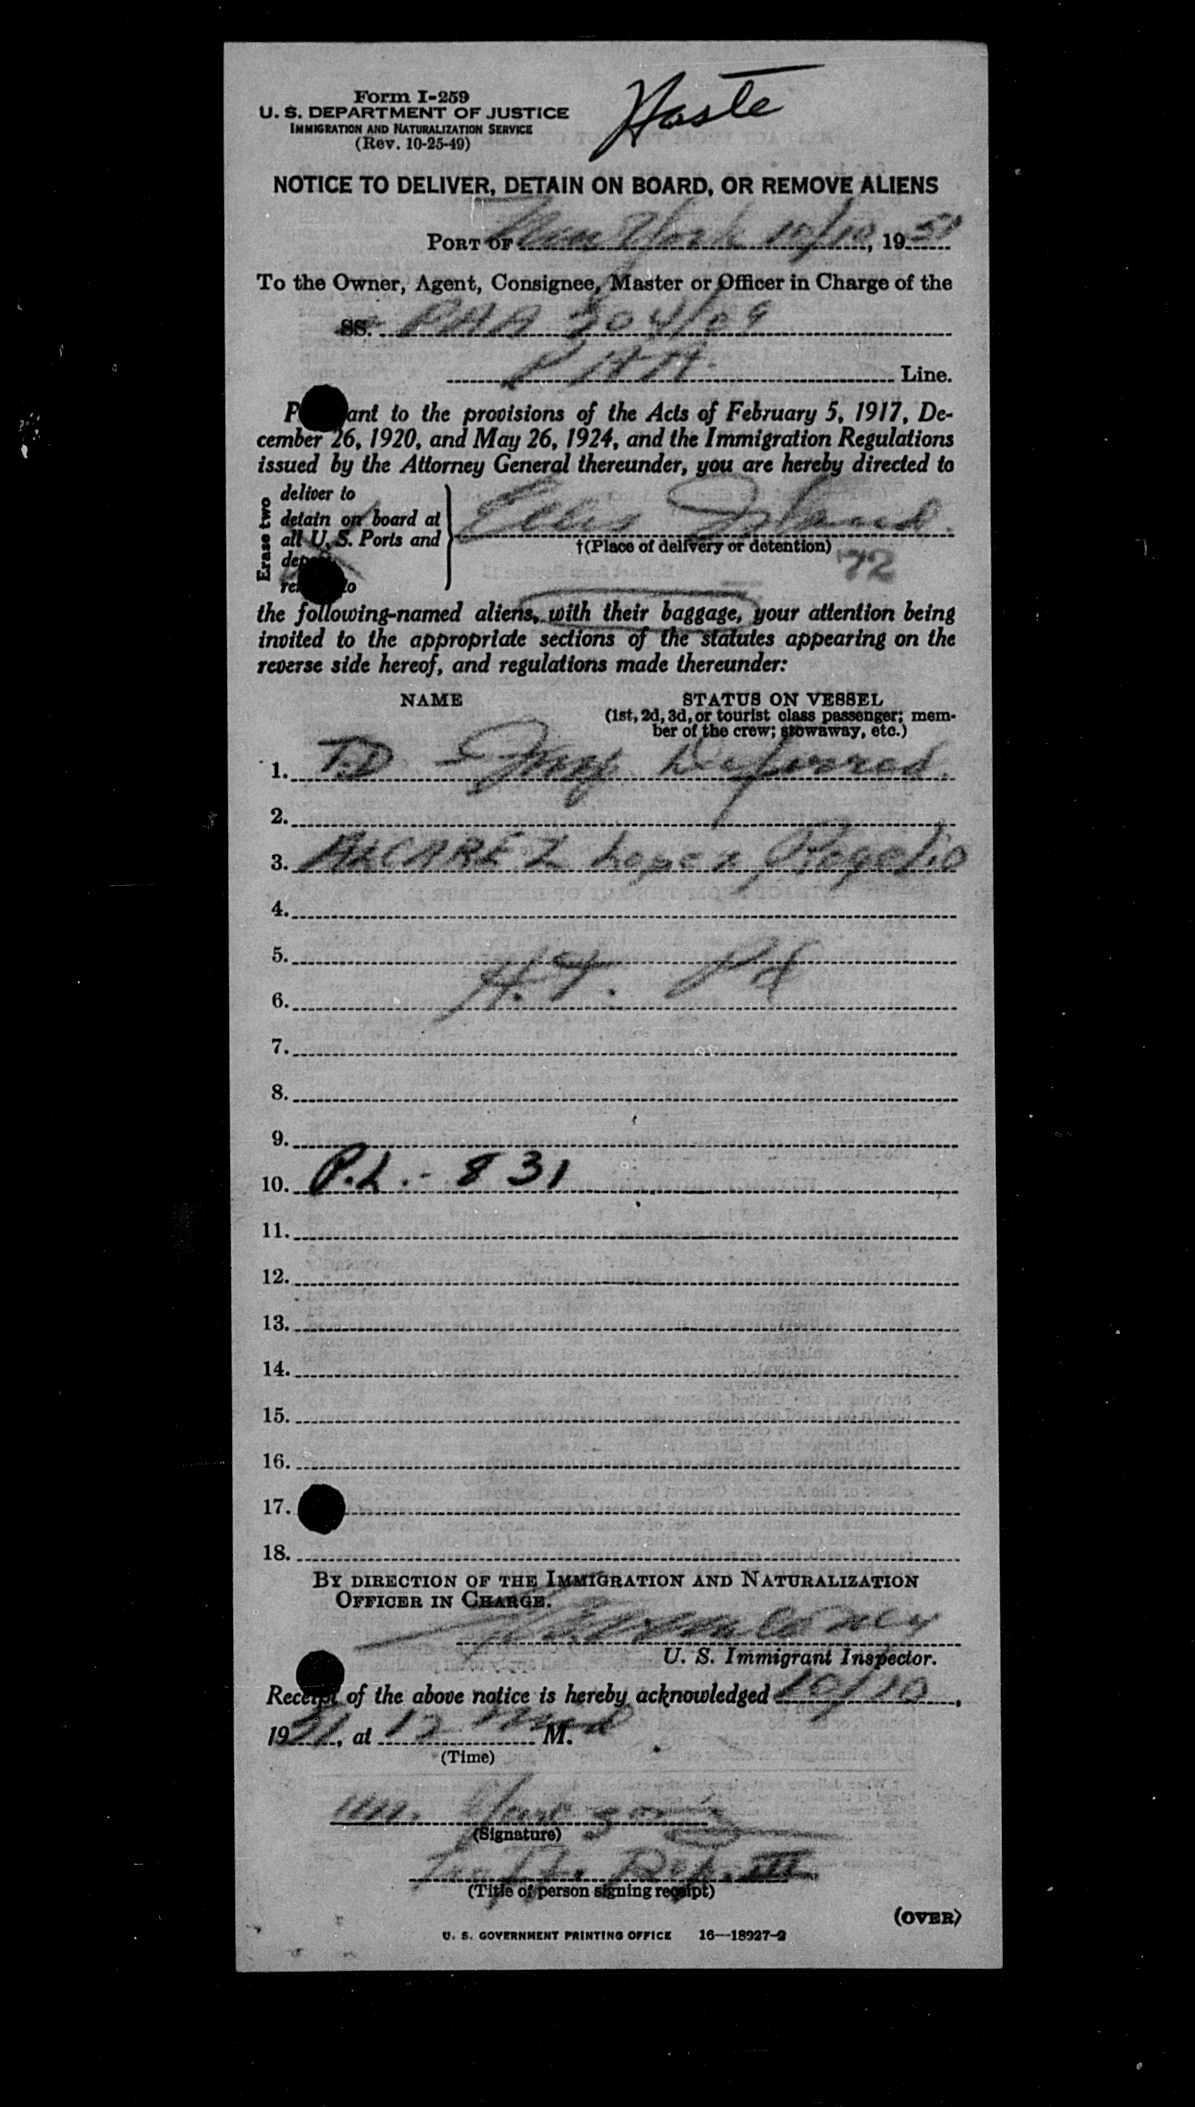 Form I-259
U. S. DEPARTMENT OF JUSTICE
IMMIGRATION AND NATURALIZATION SERVICE
(Rev. 10-25-49)
Haste
NOTICE TO DELIVER, DETAIN ON BOARD, OR REMOVE ALIENS
PORT OF New York 10/10, 1951
To the Owner, Agent, Consignee, Master or Officer in Charge of the
SS. PAA 304/09
PAA. Line.
P ant to the provisions of the Acts of February 5, 1917, De-
cember 26, 1920, and May 26, 1924, and the Immigration Regulations
issued by the Attorney General thereunder, you are hereby directed to
Erase two
deliver to
detain on board at
all U. S. Ports and
Ellis Island.
†(Place of delivery or detention)
72
the following-named aliens, with their baggage, your attention being
invited to the appropriate sections of the statutes appearing on the
reverse side hereof, and regulations made thereunder:
NAME STATUS ON VESSEL
(1st, 2d, 3d, or tourist class passenger; mem-
ber of the crew; stowaway, etc.)
1. T.D - Deferred.
2.
3. ALCAREZ Lopez, Rogelio
4.
5.
6. H.T. Pd
7.
8.
9.
10. P.L. - 831
11.
12.
13.
14.
15.
16.
17.
18.
BY DIRECTION OF THE IMMIGRATION AND NATURALIZATION
OFFICER IN CHARGE.
U. S. Immigrant Inspector.
Receipt of the above notice is hereby acknowledged 10/10,
1951, at 12 Mid M.
(Time)
Wm.
(Signature)
Rep. III
(Title of person signing receipt)
(OVER)
U. S. GOVERNMENT PRINTING OFFICE 16—18927-2